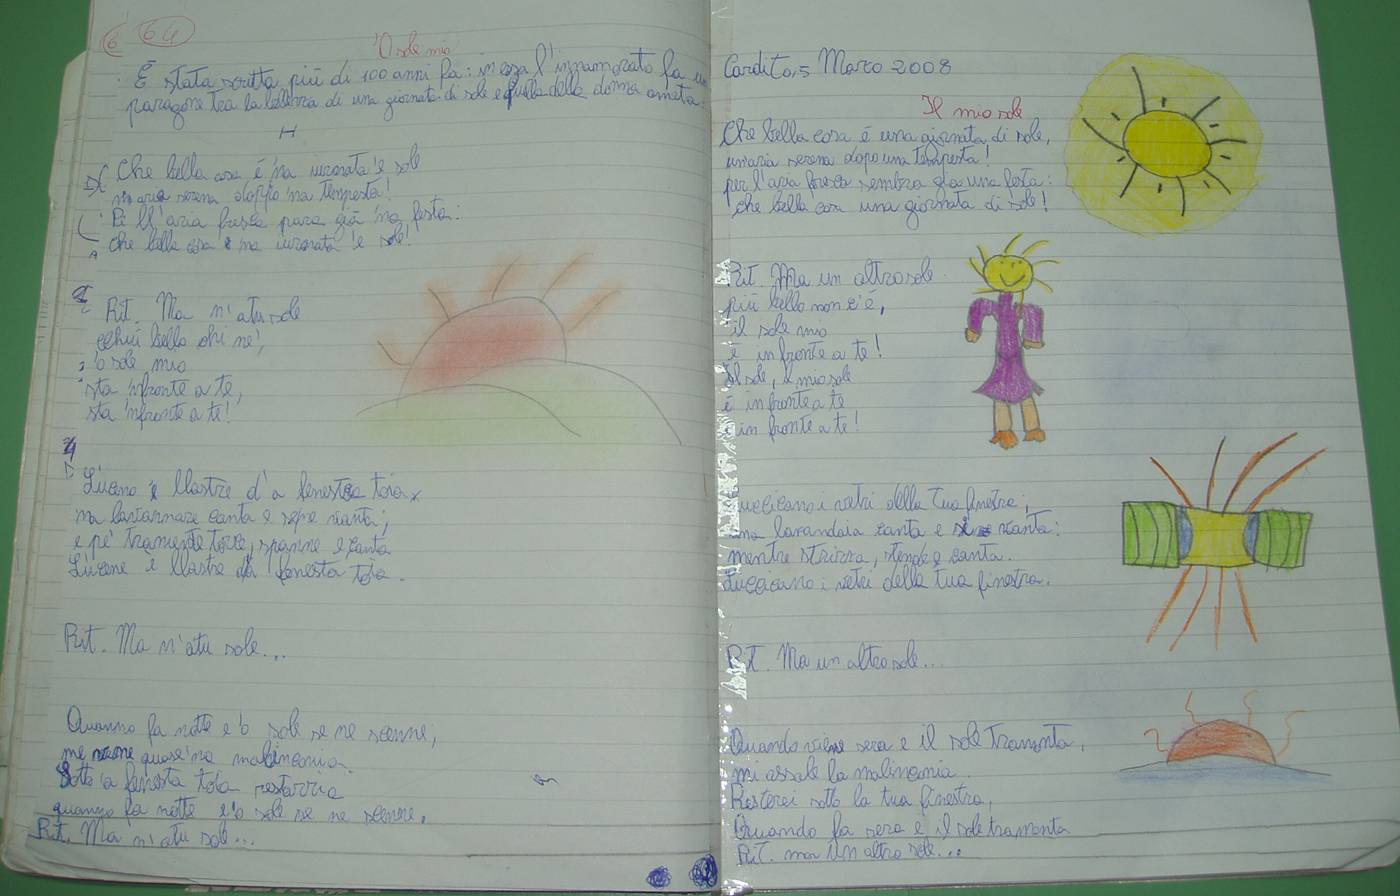 6 64
'O sole mio
È stata scritta più di 100 anni fa: in essa l'innamorato fa un
paragone tra la bellezza di una giornata di sole e quella della donna amata.
Che bella cosa è 'na iurnata 'e sole
n'aria serena doppo 'na tempesta!
Pe ll'aria fresca pare già 'na festa:
che bella cosa 'na iurnata 'e sole!
Rit. Ma n'atu sole
cchiù bello ohi ne',
'o sole mio
sta 'nfronte a te,
sta 'nfronte a te!
Lúceno 'e llastre d'a fenesta toia
na lavannare canta e se ne vanta;
e pe' tramente torce, spanne e canta
Lúcene 'e llastre d'a fenesta toia.
Rit. Ma n'atu sole...
Quanno fa notte e 'o sole se ne scenne,
me vene quase 'na malinconia.
Sotto 'a fenesta toia restarria
quanno fa notte e 'o sole se ne scenne.
Rit. Ma n'atu sole...
Cardito, 5 Marzo 2008
Il mio sole
Che bella cosa è una giornata di sole,
un'aria serena dopo una tempesta!
per l'aria fresca sembra già una festa:
che bella cosa una giornata di sole!
Rit. Ma un altro sole
più bello non c'è,
il sole mio
è in fronte a te!
Il sole, il mio sole
è in fronte a te
è in fronte a te!
Luccicano i vetri della tua finestra;
una lavandaia canta e si vanta:
mentre strizza, stende e canta.
Luccicano i vetri della tua finestra.
Rit. Ma un altro sole...
Quando viene sera e il sole tramonta,
mi assale la malinconia.
Resterei sotto la tua finestra,
Quando fa sera e il sole tramonta
Rit. ma un altro sole...